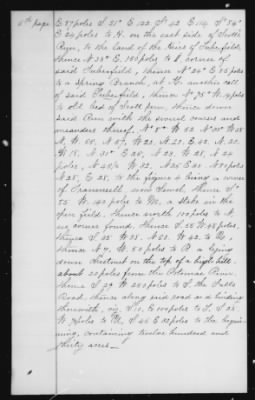 6th page E 57 poles S. 21° E. 122, S° 42 E. 114. S. 54°
E 20 poles to H. on the east side of Scott's
Run, to the land of the Heirs of Tuberfield,
thence N 23° E. 180 poles to I. corner of
said Tuberfield, thence N. 20° E 93 poles
to a Spring Branch, at K. another call
of said Tuberfield, thence N° 75° W. 14 poles
to old bed of Scott run, thence down
said Run with the several courses and
meanders thereof. N° 8° W 32. N 20° W 18
N. W. 68. N. 67. W 20. N. 21. E 42. N. 20.
W 18. N. 31° E 20. N. 23. W 28. N. 24
poles, N. 45 W 32. N. 25 E 20. N 20 poles
N 25. E 28. to the figure 4 being a corner
of Trammell, now Lewis, thence S°
75 W. 140 poles to M, a stake in the
open field. Thence north 100 poles to N,
no corner found. Thence S. 55 W 98 poles,
thence S. 35 W. 38. N 62. W 42. to O,
thence N. 7. W 80 poles to P, a leaning
down chestnut on the top of a high hill
about 20 poles from the Potomac River.
thence S. 29 W 221 poles to T. the Falls
Road, thence along said road as a binding
therewith, viz, S. 10, E 100 poles to S, S 25
W 78 poles to U, S 46 E 62 poles to the begin-
ning, containing twelve hundred and
thirty acres—